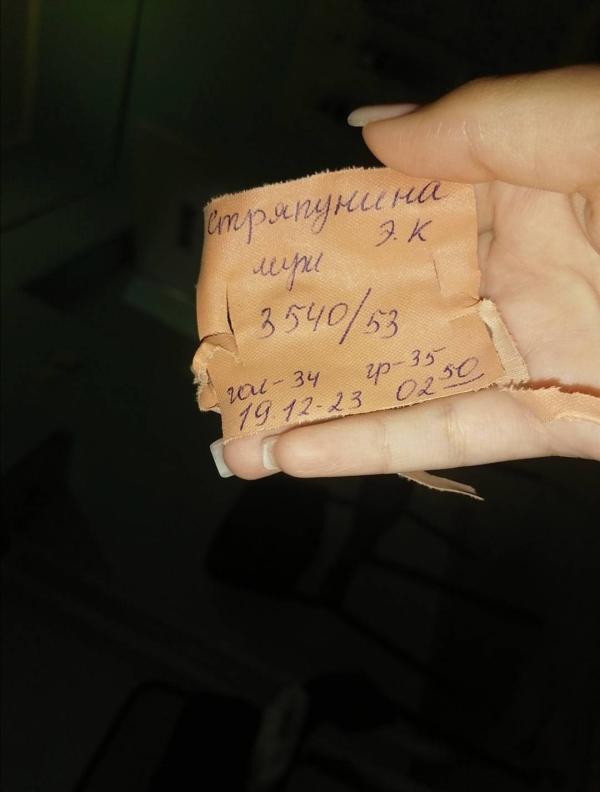 Стряпунина
Э. К
муж
3540/53
гол-34 гр-35
19.12-23 02 50